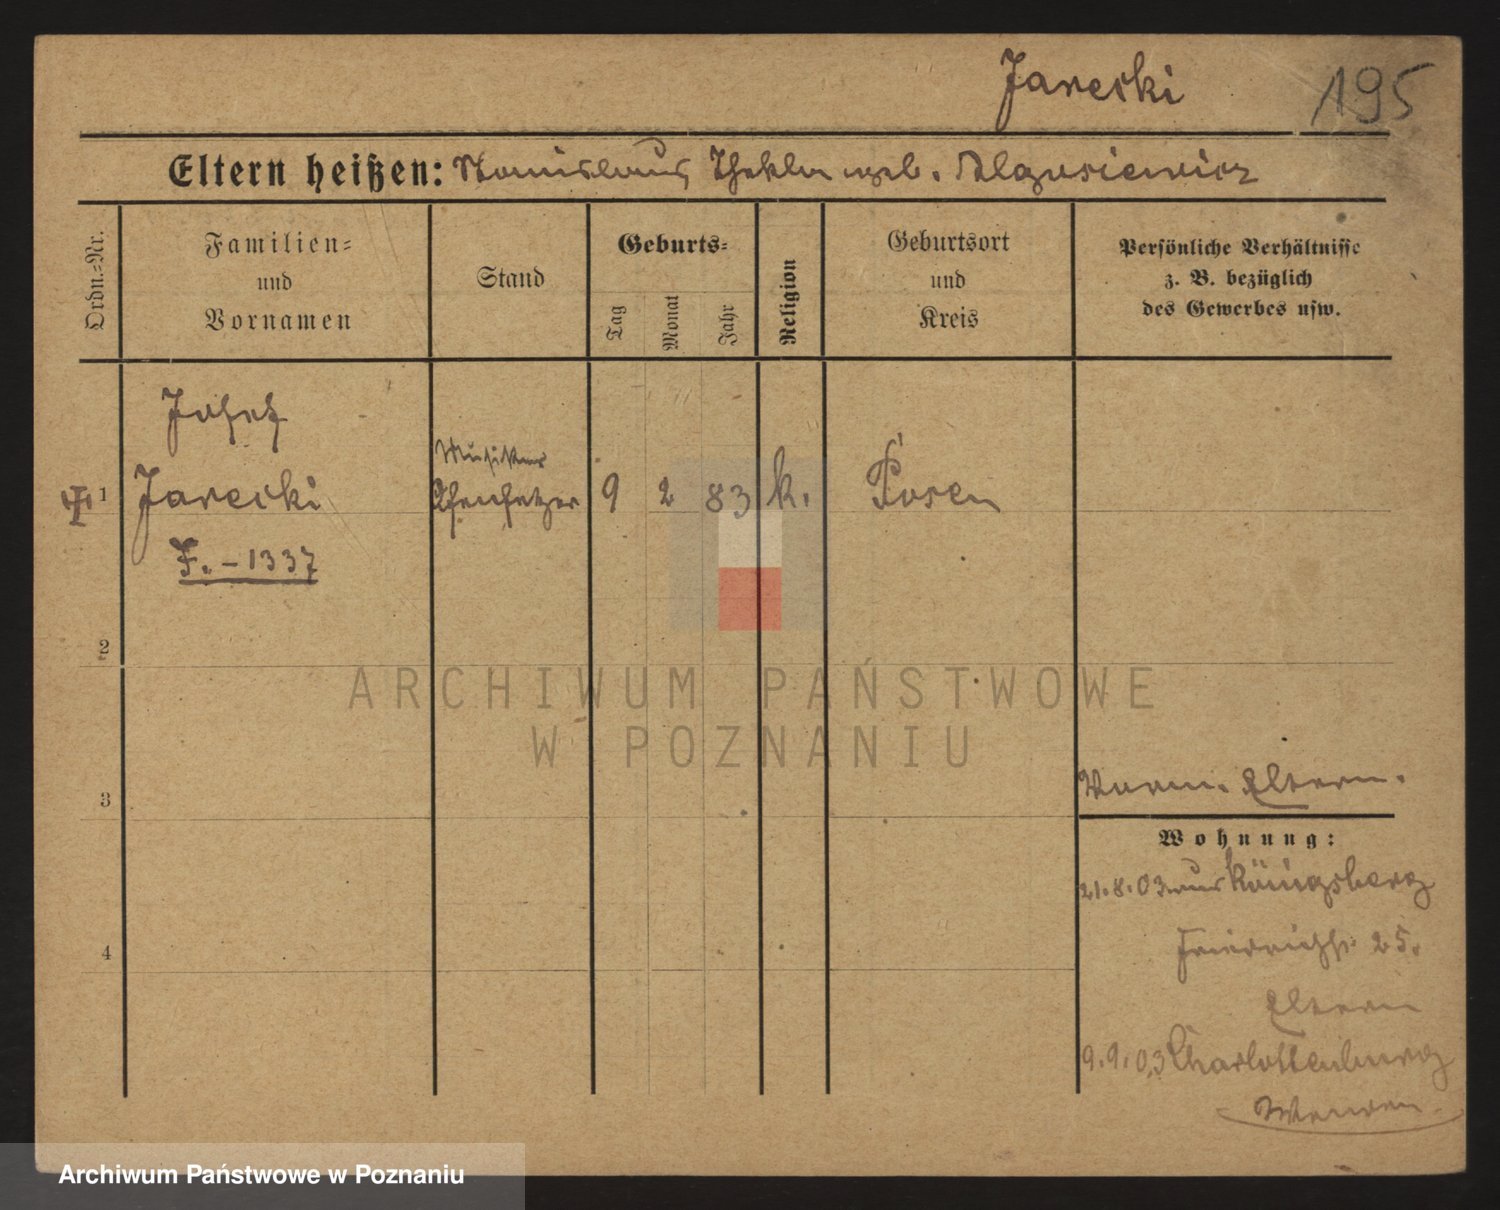 Jarecki
195
Eltern heißen: Stanislaus, Thekla geb. Olgasiewicz
Ordn.-Nr.
Familien-
und
Vornamen
Stand
Geburts-
Tag
Monat
Jahr
Religion
Geburtsort
und
Kreis
Persönliche Verhältnisse
z. B. bezüglich
des Gewerbes usw.
Josef
Musiker
1 Jarecki Ofensetzer 9 2 83 k. Posen
F. - 1337
2
3
Eltern.
Wohnung:
21.8.03 aus Königsberg
4
Friedrichstr 25.
Eltern
9.9.03 Charlottenburg
ARCHIWUM PAŃSTWOWE
W POZNANIU
Archiwum Państwowe w Poznaniu